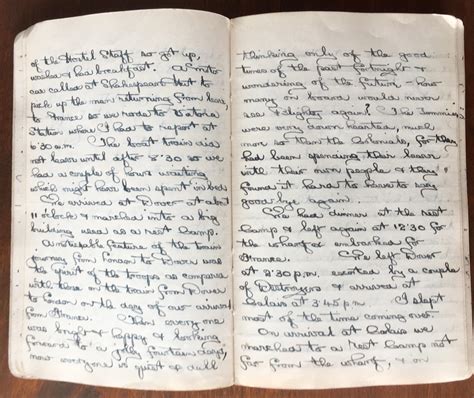 of the Hostel Staff so got up,
washed & had breakfast. A motor
car called at Shakespeare Hut to
pick up the men returning from leave
to France so we rode to Victoria
Station where I had to report at
6:30 a.m. The boat train did
not leave until after 8:30 so we
had a couple of hours waiting
which might have been spent in bed
We arrived at Dover at about
11 o'clock & marched into a big
building used as a rest camp.
A noticeable feature of the train
journey from London to Dover was
the spirit of the troops as compared
with those in the train from Dover
to London on the day of our arrival
from France. Then everyone
was bright & happy & looking
forward to a jolly fourteen days,
now everyone is quiet & dull
thinking only of the good
times of the past fortnight &
wondering of the future - how
many on board would never
see Blighty again? The Tommies
were very down hearted, much
more so than the Colonials, for they
had been spending their leave
with their own people & they
found it hard to have to say
good bye again.
We had dinner at the rest
camp & left again at 12:30 for
the wharf & embarked for
France. We left Dover
at 2:30 p.m. escorted by a couple
of Destroyers & arrived at
Calais at 3:45 p.m. I slept
most of the time coming over.
On arrival at Calais we
marched to a Rest Camp not
far from the wharf, & on